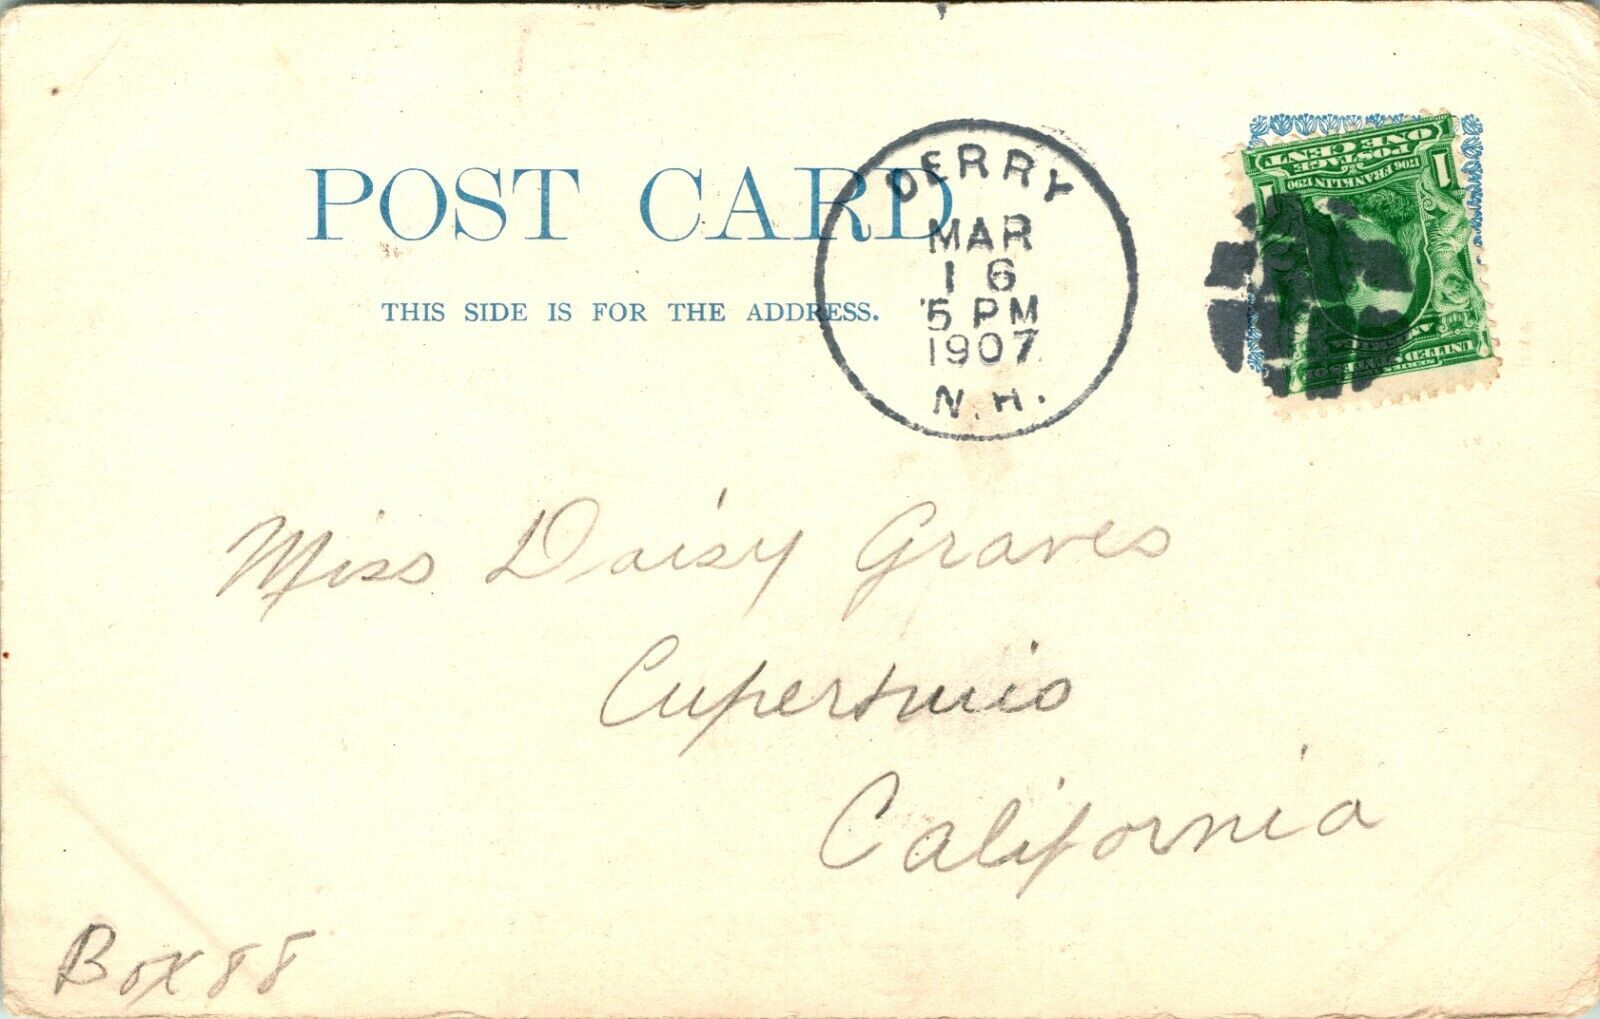 POST CARD
THIS SIDE IS FOR THE ADDRESS.
DERRY
MAR
16
5 PM
1907
N.H.
1 1
ONE CENT
POSTAGE
1706 FRANKLIN 1790
UNITED STATES OF
AMERICA
Miss Daisy Graves
Cupertinio
California
Box 88